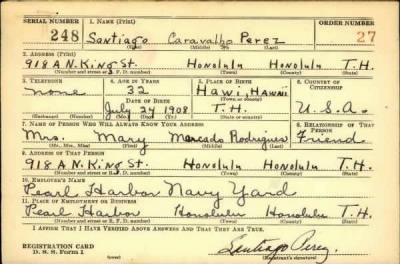 SERIAL NUMBER 1. NAME (Print) ORDER NUMBER
248 Santiago Caravalho Perez 27
(First) (Middle) (Last)
2. ADDRESS (Print)
918 A N. King St. Honolulu Honolulu T.H.
(Number and street or R. F. D. number) (Town) (County) (State)
3. TELEPHONE 4. AGE IN YEARS 5. PLACE OF BIRTH 6. COUNTRY OF CITIZENSHIP
none 32 Hawi, Hawaii
(Town or county)
DATE OF BIRTH
July 24 1908 T.H. U.S.A.
(Mo.) (Day) (Yr.) (State or country)
7. NAME OF PERSON WHO WILL ALWAYS KNOW YOUR ADDRESS 8. RELATIONSHIP OF THAT PERSON
Mrs. Mary Mercado Rodrigues Friend
(Mr., Mrs., Miss) (First) (Middle) (Last)
9. ADDRESS OF THAT PERSON
918 A N. King St. Honolulu Honolulu T.H.
(Number and street or R. F. D. number) (Town) (County) (State)
10. EMPLOYER'S NAME
Pearl Harbor Navy Yard
11. PLACE OF EMPLOYMENT OR BUSINESS
Pearl Harbor Honolulu Honolulu T.H.
(Number and street or R. F. D. number) (Town) (County) (State)
I AFFIRM THAT I HAVE VERIFIED ABOVE ANSWERS AND THAT THEY ARE TRUE.
REGISTRATION CARD
D. S. S. Form 1 Santiago Perez
(Registrant's signature)